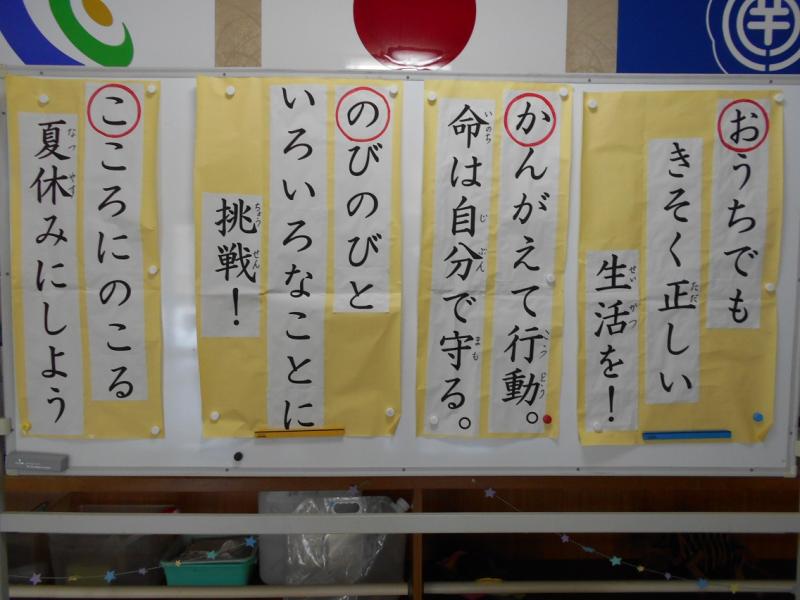 おうちでも
きそく正しい
生活を！
かんがえて行動。
命は自分で守る。
のびのびと
いろいろなことに
挑戦！
こころにのこる
夏休みにしよう